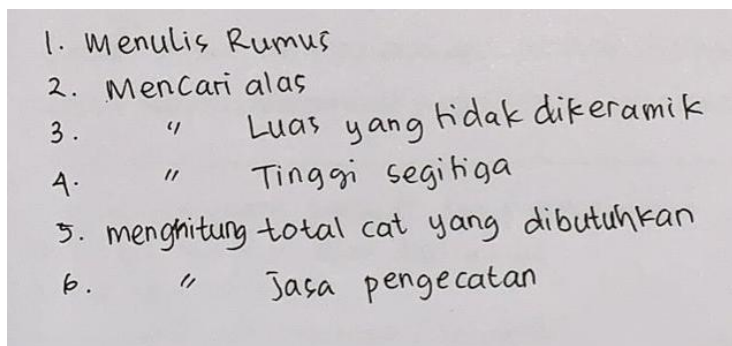 1. Menulis Rumus
2. Mencari alas
3. " Luas yang tidak dikeramik
4. " Tinggi segitiga
5. menghitung total cat yang dibutuhkan
6. " Jasa pengecatan